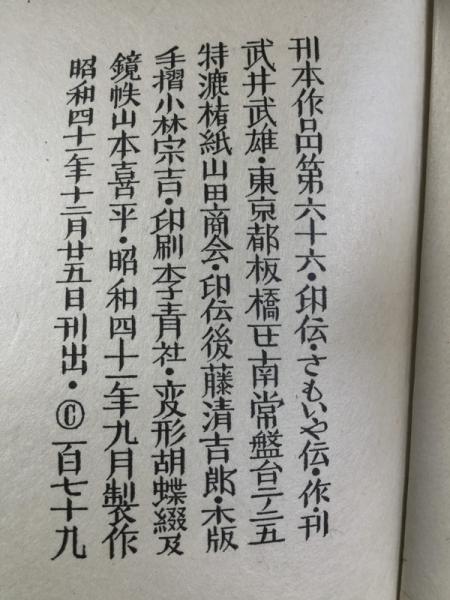 刊本作品第六十六・印伝・さもいや伝・作・刊
武井武雄・東京都板橋区南常盤台一ノ二五
特漉楮紙山田商会・印伝後藤清吉郎・木版
手摺小林宗吉・印刷李青社・変形胡蝶綴及
鏡帙山本喜平・昭和四十一年九月製作
昭和四十一年十二月廿五日刊出・©一百七十九